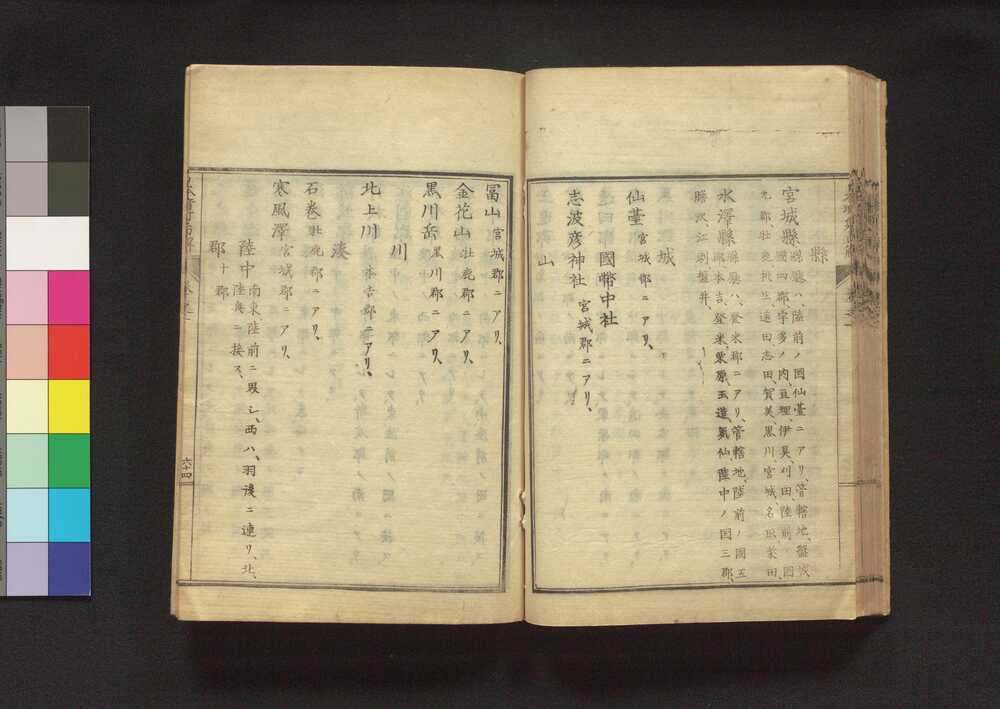 縣
宮城縣 縣廳ハ、陸前ノ國仙臺ニアリ、管轄地、磐城
國四郡、宇多ノ内、亘理、伊具、刈田、陸前ノ國
九郡、牡鹿、桃生、遠田、志田、賀美、黒川、宮城、名取、柴田、
水澤縣 縣廳ハ、登米郡ニアリ、管轄地、陸前ノ國五
郡、本吉、登米、栗原、玉造、氣仙、陸中ノ國三郡、
膽沢、江刺、盤井、
城
仙臺 宮城郡ニアリ、
國幣中社
志波彦神社 宮城郡ニアリ、
山
冨山 宮城郡ニアリ、
金花山 牡鹿郡ニアリ、
黒川岳 黒川郡ニアリ、
川
北上川 本吉郡ニアリ、
湊
石巻 牡鹿郡ニアリ、
寒風澤 宮城郡ニアリ、
陸中 南東陸前ニ界シ、西ハ、羽後ニ連リ、北、
陸奥ニ接ス、
郡 十郡
六十四